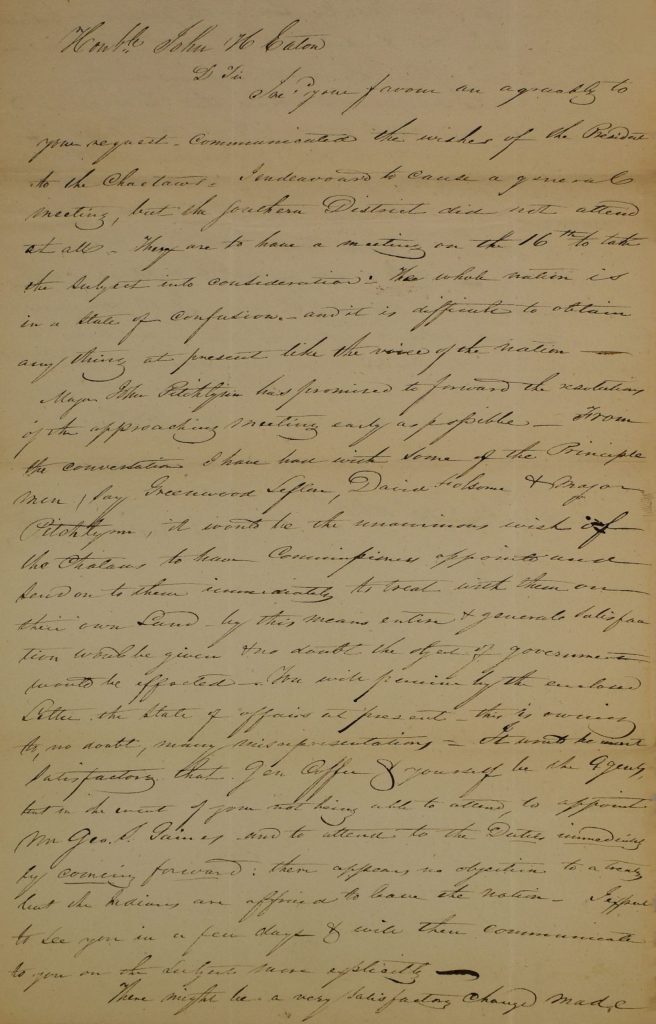 Honble John H Eaton
D Sir
Sir your favour an agreably to
your request - communicated the wishes of the President
to the Choctaws - I endeavourd to cause a general
meeting, but the Southern District did not attend
at all - They are to have a meeting on the 16th to take
the subject into consideration - The whole nation is
in a state of confusion - and it is difficult to obtain
any thing at present like the voice of the nation —
Major John Pitchlynn has promised to forward the resolutions
of the approaching meeting early as possible - From
the conversation I have had with some of the Principle
men, say Greenwood Leflore, David Folsome & Major
Pitchlynn, it would be the unanimous wish of
the Chataws to have Commissioners appointed and
send on to them immediately to treat with them on
their own Land - by this means entire & general satisfac
tion would be given & no doubt the object of government
would be effected - You will perceive by the enclosed
Letter the state of affairs at present - this is owing
to, no doubt, many misrepresentations - It would be most
satisfactory that Gen Coffee & yourself be the Agents,
but in the event of your not being able to attend, to appoint
Mr Geo. S. Gaines and to attend to the Duties immediately
by coming forward: there appears no objection to a treaty
but the Indians are affraid to leave the nation - I expect
to see you in a few days & will then communicate
to you on the subject more explicitly —
There might be a very satisfactory change made